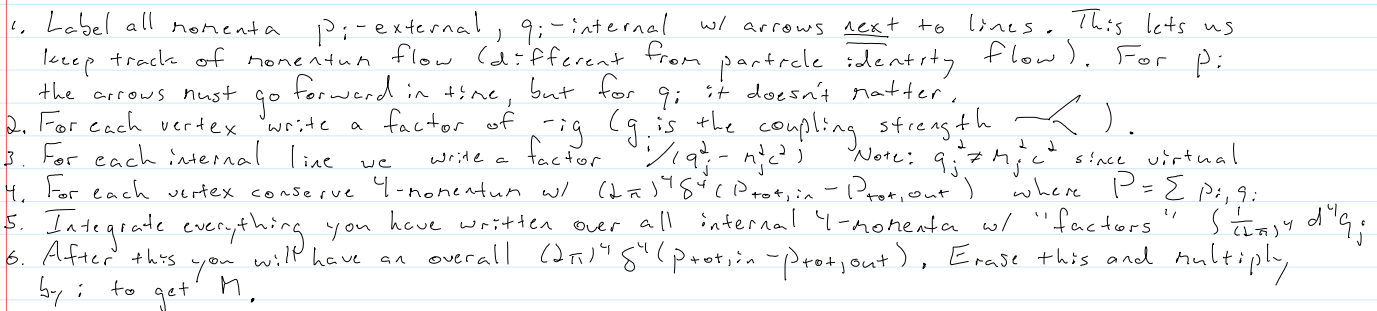 1. Label all momenta pᵢ - external, qᵢ - internal w/ arrows next to lines. This lets us
keep track of momentum flow (different from particle identity flow). For pᵢ
the arrows must go forward in time, but for qᵢ it doesn't matter.
2. For each vertex write a factor of -ig (g is the coupling strength ).
3. For each internal line we write a factor i/(qⱼ² - mⱼ²c²) Note: qⱼ² ≠ mⱼ²c² since virtual
4. For each vertex conserve 4-momentum w/ (2π)⁴δ⁴(Ptot,in - Ptot,out) where P = Σ pᵢ,qᵢ
5. Integrate everything you have written over all internal 4-momenta w/ "factors" ∫ 1/(2π)⁴ d⁴qⱼ
6. After this you will have an overall (2π)⁴δ⁴(ptot,in - ptot,out). Erase this and multiply
by i to get M.